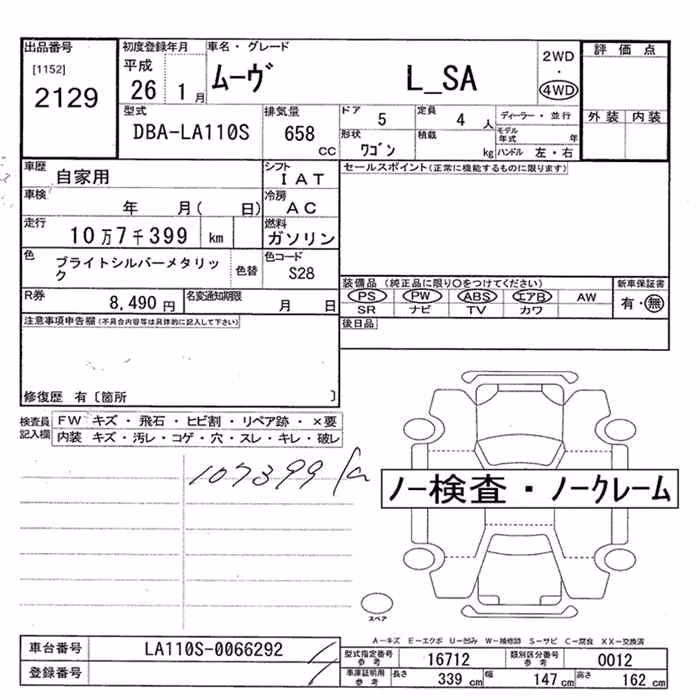 出品番号
[1152]
2129
初度登録年月
平成
26 1月
車名・グレード
ムーヴ L_SA
2WD
・
4WD
評価点
外装 内装
型式
DBA-LA110S
排気量
658
CC
ドア
5
定員
4 人
ディーラー・並行
形状
ワゴン
積載
kg
モデル年式 年
ハンドル 左・右
車歴
自家用
シフト
IAT
セールスポイント(正常に機能するものに限ります)
車検
年 月( 日)
冷房
AC
走行
10万7千399 km
燃料
ガソリン
色
ブライトシルバーメタリック
色替
色コード
S28
装備品 (純正品に限り○をつけてください)
新車保証書
PS PW ABS エアB AW
有・無
SR ナビ TV カワ
R券
8,490 円
名変通知期限
月 日
後日品
注意事項申告欄(不具合内容等は具体的に記入して下さい)
修復歴 有〔箇所 〕
検査員記入欄
FW キズ・飛石・ヒビ割・リペア跡・×要
内装 キズ・汚レ・コゲ・穴・スレ・キレ・破レ
107399
ノー検査・ノークレーム
スペア
A−キズ E−エクボ U−凹み W−補修跡 S−サビ C−腐食 XX−交換済
車台番号
LA110S-0066292
登録番号
型式指定番号
参考
16712
類別区分番号
参考
0012
車庫証明用
参考
長さ
339 cm
幅
147 cm
高さ
162 cm